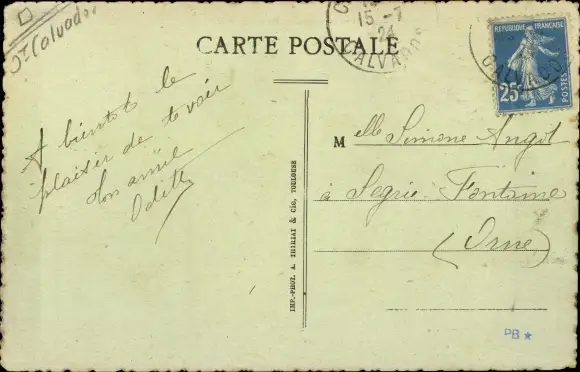 Calvados
15-7
24
CALVADOS
CARTE POSTALE
REPUBLIQUE FRANÇAISE
25c
POSTES
CALVADOS
A bientôt le
plaisir de te voir
Ton amie
Odette
Melle Simone Angot
à Segrie-Fontaine
(Orne)
IMP.-PHOT. A. THIRIAT & Cie, TOULOUSE
PB ★